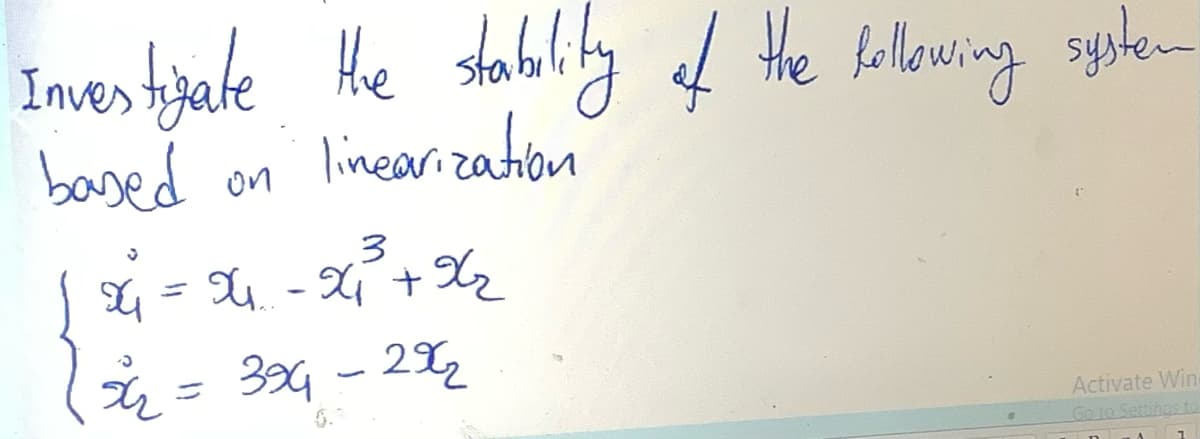 Investigate the stability of the following system
based on linearization
ẋ₁ = x₁ - x₁³ + x₂
ẋ₂ = 3x₁ - 2x₂
Activate Win
Go to Settings to